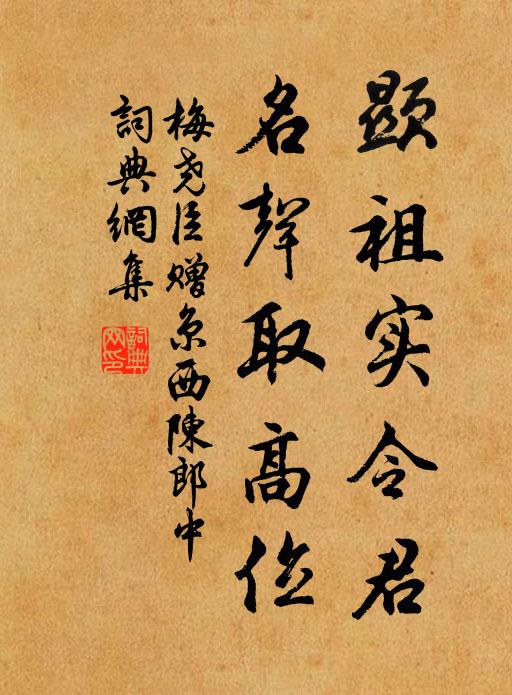 顕祖实令君
名聲取高位
梅尧臣赠京西陳郎中
詞典網集
詞典
网印